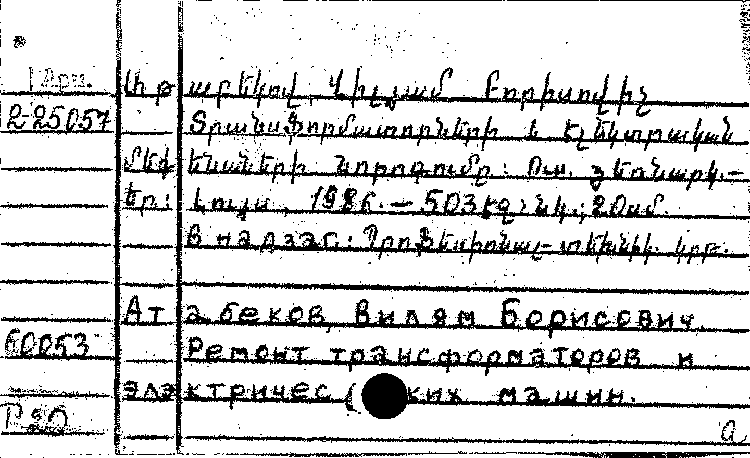 Арм.
Աթաբեկով, Վիլյամ Բորիսովիչ
2-25057 Տրանսֆորմատորների և էլեկտրական
մեքենաների նորոգումը: Ուս. ձեռնարկ.—
Եր.: Լույս, 1986.— 503 էջ: նկ.; 20 սմ.
В надзаг.: Պրոֆեսիոնալ-տեխնիկ. կրթ.
Атабеков, Вилям Борисович.
60053 Ремонт трансформаторов и
электричес ( ких машин.
Г 20
а